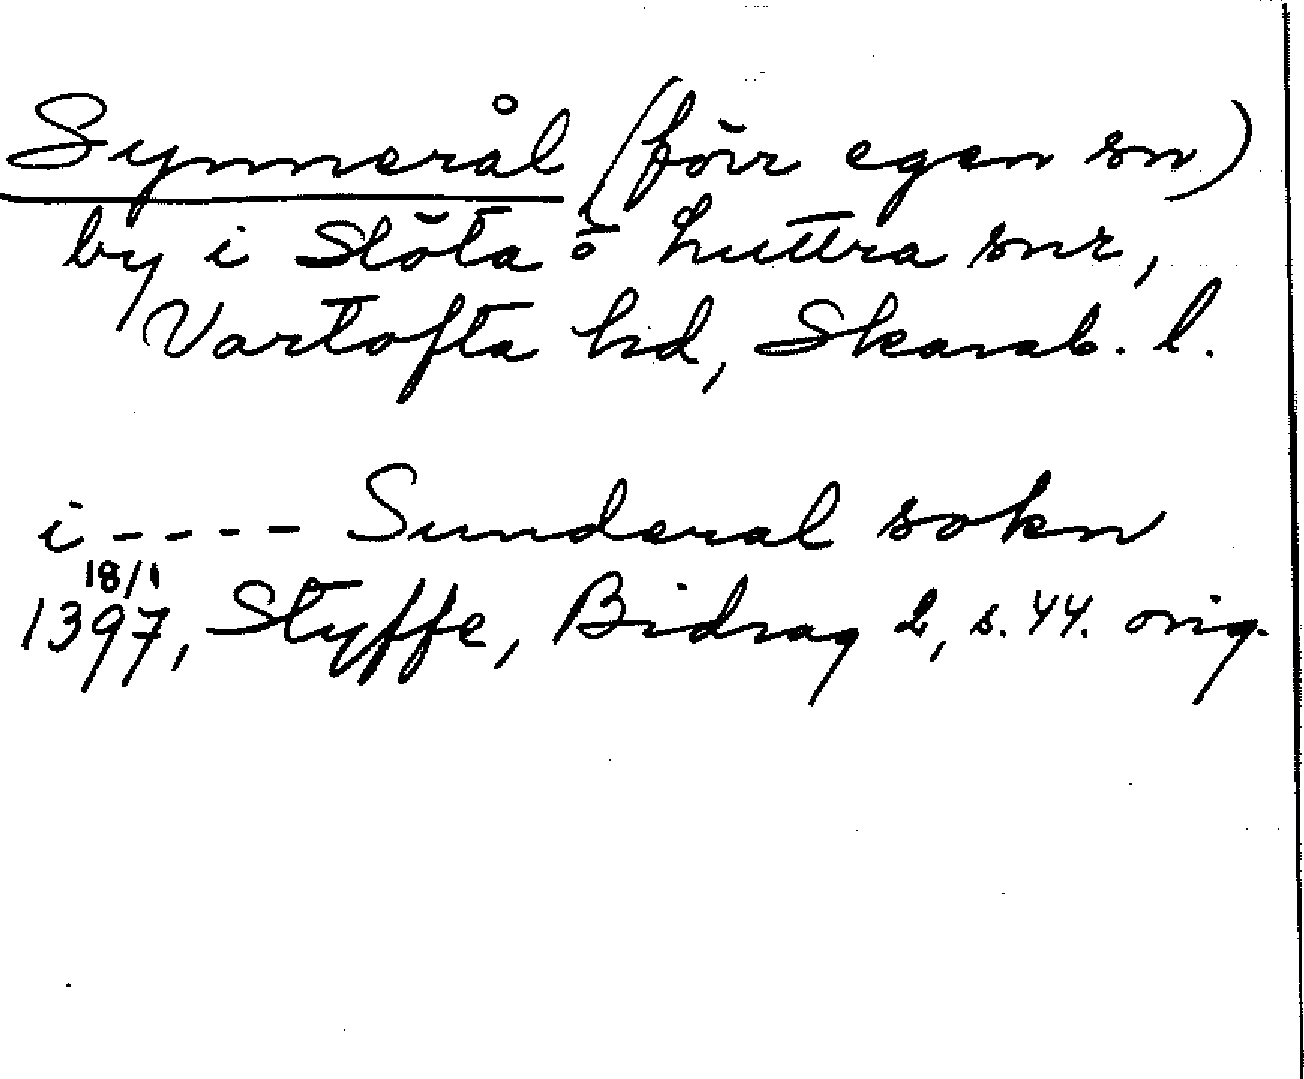 Synnerål (förr egen sn)
by i Slöta o Luttra snr,
Vartofta hd, Skarab. l.
i - - - - Sunderal sokn
18/1
1397, Styffe, Bidrag 2, s. 44. orig.